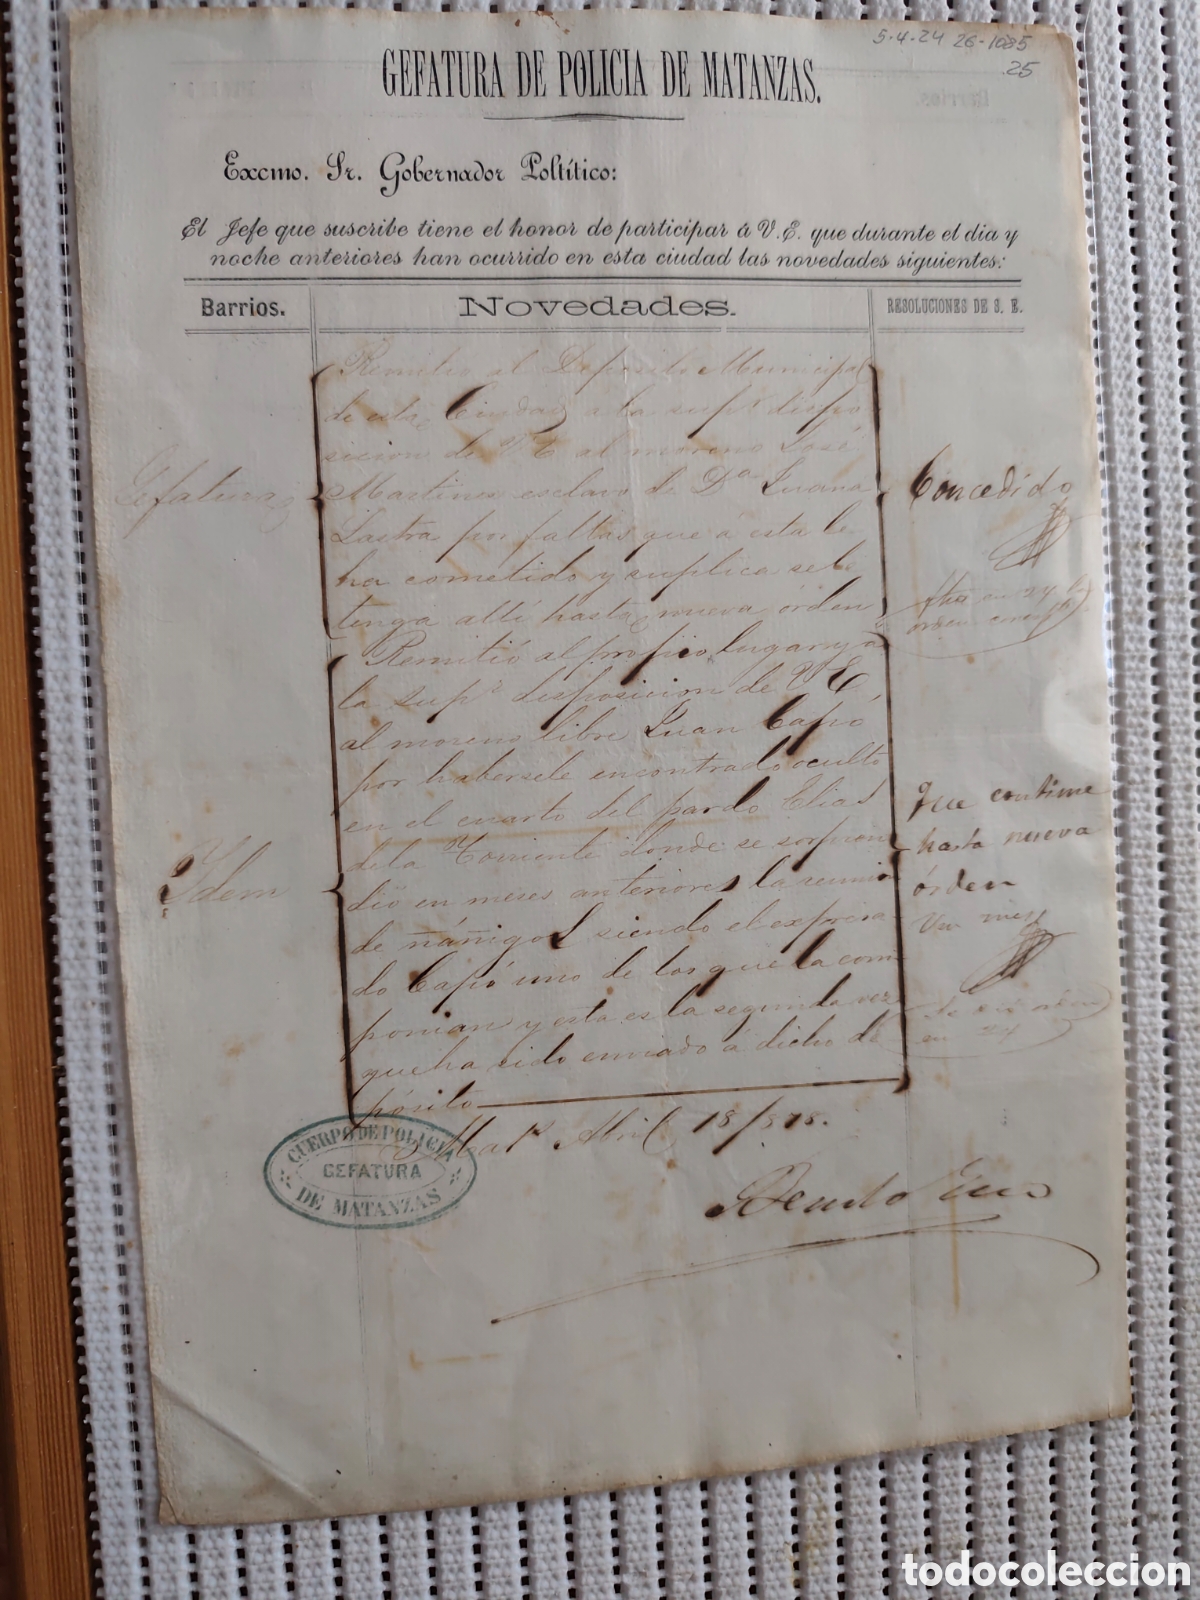 5-4-24 26-1085
25
GEFATURA DE POLICIA DE MATANZAS.
Excmo. Sr. Gobernador Poltítico:
El Jefe que suscribe tiene el honor de participar á V.E. que durante el dia y
noche anteriores han ocurrido en esta ciudad las novedades siguientes:
Barrios.
Novedades.
RESOLUCIONES DE S. E.
Gefatura
Remitio al Deposito Municipal
de esta Ciudad a la supr dispo
sicion de VE al moreno José
Martines esclavo de Da Juana
Lastra por faltas que á esta le
ha cometido y suplica se le
tenga allí hasta nueva órden
Concedido
en 24
orden
Ydem
Remitió al propio lugar y a
la supr desposicion de VE
al moreno libre Juan Capó
por habersele encontrado oculto
en el cuarto del pardo Elias
de la Torriente donde se sorpren
dió en meses anteriores la reunio
de ñáñigos siendo el expresa
do Capó uno de los que la com
ponian y esta es la segunda vez
que ha sido enviado á dicho de
pósito
Que continue
hasta nueva
órden
Un mes
en 24
Mats Abril 18/878.
CUERPO DE POLICIA
GEFATURA
DE MATANZAS
todocoleccion